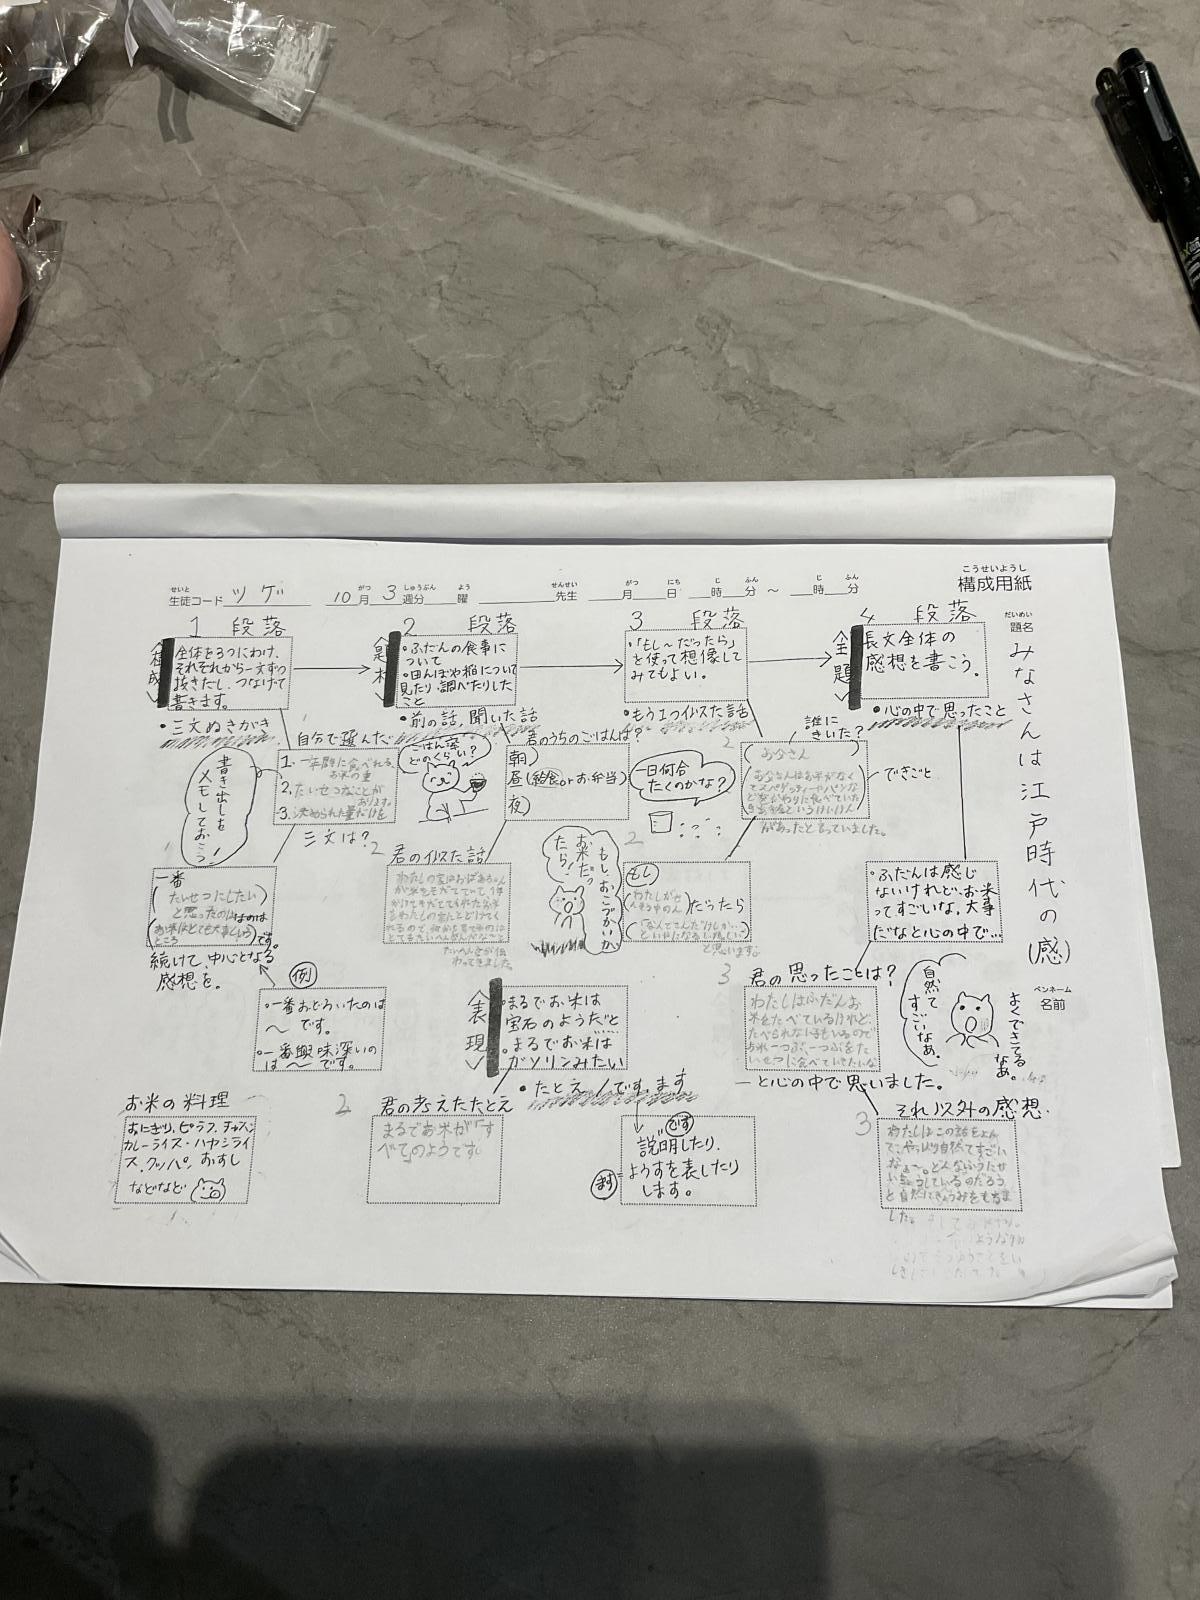 構成用紙
こうせいようし
生徒コード ツゲ 10月 3週分 曜 先生 月 日 時 分 ～ 時 分
せいと がつ しゅうぶん よう せんせい がつ にち じ ふん じ ふん
題名
だいめい
みなさんは江戸時代の(感)
ペンネーム
名前
1 段落
〈構成〉
全体を3つにわけ、
それぞれから一文ずつ
抜きだし、つなげて
書きます。
・三文ぬきがき
自分で選んだ
1.一年間に食べれる
お米の量
2.たいせつなことが
あります。
3.決められた量だけを
三文は？
書き出しを
メモしておこう！
一番
(たいせつにしたい)
と思った
のは
なのは
(お米はとても大事という
ところ)です。
続けて、中心となる
感想を。
例
・一番おどろいたのは
～です。
・一番興味深いの
は～です。
お米の料理
おにぎり、ピラフ、チャーハン
カレーライス・ハヤシライ
ス、クッパ、おすし
などなど
2 段落
〈題材〉
・ふだんの食事に
ついて
・田んぼや稲について
見たり、調べたりした
こと
・前の話、聞いた話
ごはん、容
どのくらい？
君のうちのごはんは？
朝)
昼(給食orお弁当)
夜)
2
君の似た話
わたしの
たいへんさが伝
わってきました。
〈表現〉
・まるでお米は
宝石のようだと
・まるでお米は
ガソリンみたい
・たとえ/です、ます
2
君の考えたたとえ
まるでお米が「す
べて」のようです。
です
説明したり、
ます
ようすを表したり
します。
3 段落
・「もし～だったら」
を使って想像して
みてもよい。
・もう1つ似た話
一日何合
たくのかな？
2
誰に
きいた？
(お父さん)
お父さんはお米がなく
てスパゲッティーやパンな
どをかわりに食べていた
があったと言っていました。
できごと
もし、おこづかいが
お米だっ
たら！
2
もし
だったら
と思います。
4 段落
〈主題〉
長文全体の
感想を書こう。
・心の中で思ったこと
・ふだんは感じ
ないけれど、お米
ってすごいな。大事
だなと心の中で…
3
君の思ったことは？
わたしはふだんお
米をたべているけれど、
たべられない人もいるので
お米一つぶ、一つぶをた
いせつに食べていきたいな
―と心の中で思いました。
自然て
すごいなあ。
よくできてる
なあ。
それ以外の感想
3
わたしはこの話をよん
で、やっぱり自然てすごい
なぁ～。どんなふうにせ
いちょうしているのだろう
と自然にきょうみをもちま
した。